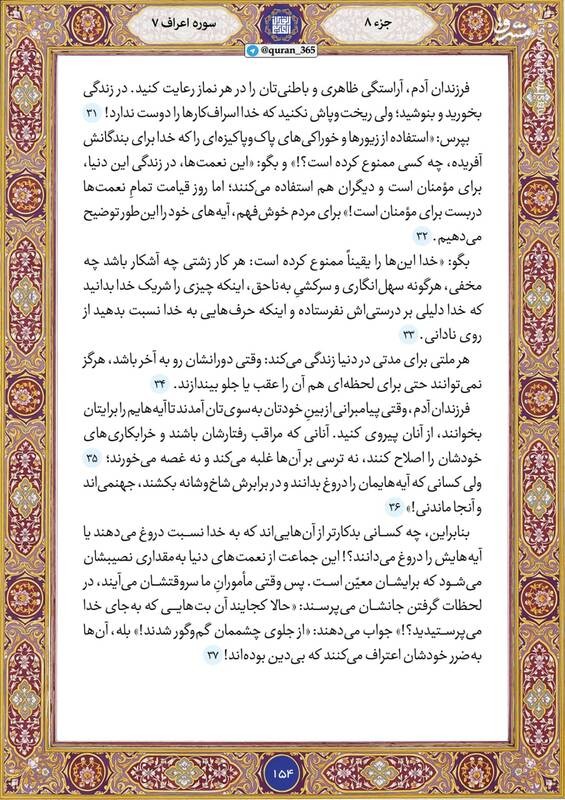 جزء ۸
سوره اعراف ۷
@quran_365
فرزندان آدم، آراستگی ظاهری و باطنی‌تان را در هر نماز رعایت کنید. در زندگی
بخورید و بنوشید؛ ولی ریخت‌وپاش نکنید که خدا اسراف‌کارها را دوست ندارد! ۳۱
بپرس: «استفاده از زیورها و خوراکی‌های پاک‌وپاکیزه‌ای را که خدا برای بندگانش
آفریده، چه کسی ممنوع کرده است؟!» و بگو: «این نعمت‌ها، در زندگی این دنیا،
برای مؤمنان است و دیگران هم استفاده می‌کنند؛ اما روز قیامت تمامِ نعمت‌ها
دربست برای مؤمنان است!» برای مردم خوش‌فهم، آیه‌های خود را این‌طور توضیح
می‌دهیم. ۳۲
بگو: «خدا این‌ها را یقیناً ممنوع کرده است: هر کار زشتی چه آشکار باشد چه
مخفی، هرگونه سهل‌انگاری و سرکشیِ به‌ناحق، اینکه چیزی را شریک خدا بدانید
که خدا دلیلی بر درستی‌اش نفرستاده و اینکه حرف‌هایی به خدا نسبت بدهید از
روی نادانی. ۳۳
هر ملتی برای مدتی در دنیا زندگی می‌کند: وقتی دورانشان رو به آخر باشد، هرگز
نمی‌توانند حتی برای لحظه‌ای هم آن را عقب یا جلو بیندازند. ۳۴
فرزندان آدم، وقتی پیامبرانی از بینِ خودتان به‌سوی‌تان آمدند تا آیه‌هایم را برایتان
بخوانند، از آنان پیروی کنید. آنانی که مراقب رفتارشان باشند و خرابکاری‌های
خودشان را اصلاح کنند، نه ترسی بر آن‌ها غلبه می‌کند و نه غصه می‌خورند؛ ۳۵
ولی کسانی که آیه‌هایمان را دروغ بدانند و در برابرش شاخ‌وشانه بکشند، جهنمی‌اند
و آنجا ماندنی!» ۳۶
بنابراین، چه کسانی بدکارتر از آن‌هایی‌اند که به خدا نسبت دروغ می‌دهند یا
آیه‌هایش را دروغ می‌دانند؟! این جماعت از نعمت‌های دنیا به‌مقداری نصیبشان
می‌شود که برایشان معیّن است. پس وقتی مأمورانِ ما سروقتشان می‌آیند، در
لحظات گرفتن جانشان می‌پرسند: «حالا کجایند آن بت‌هایی که به‌جای خدا
می‌پرستیدید؟!» جواب می‌دهند: «از جلوی چشممان گم‌وگور شدند!» بله، آن‌ها
به‌ضرر خودشان اعتراف می‌کنند که بی‌دین بوده‌اند! ۳۷
۱۵۴